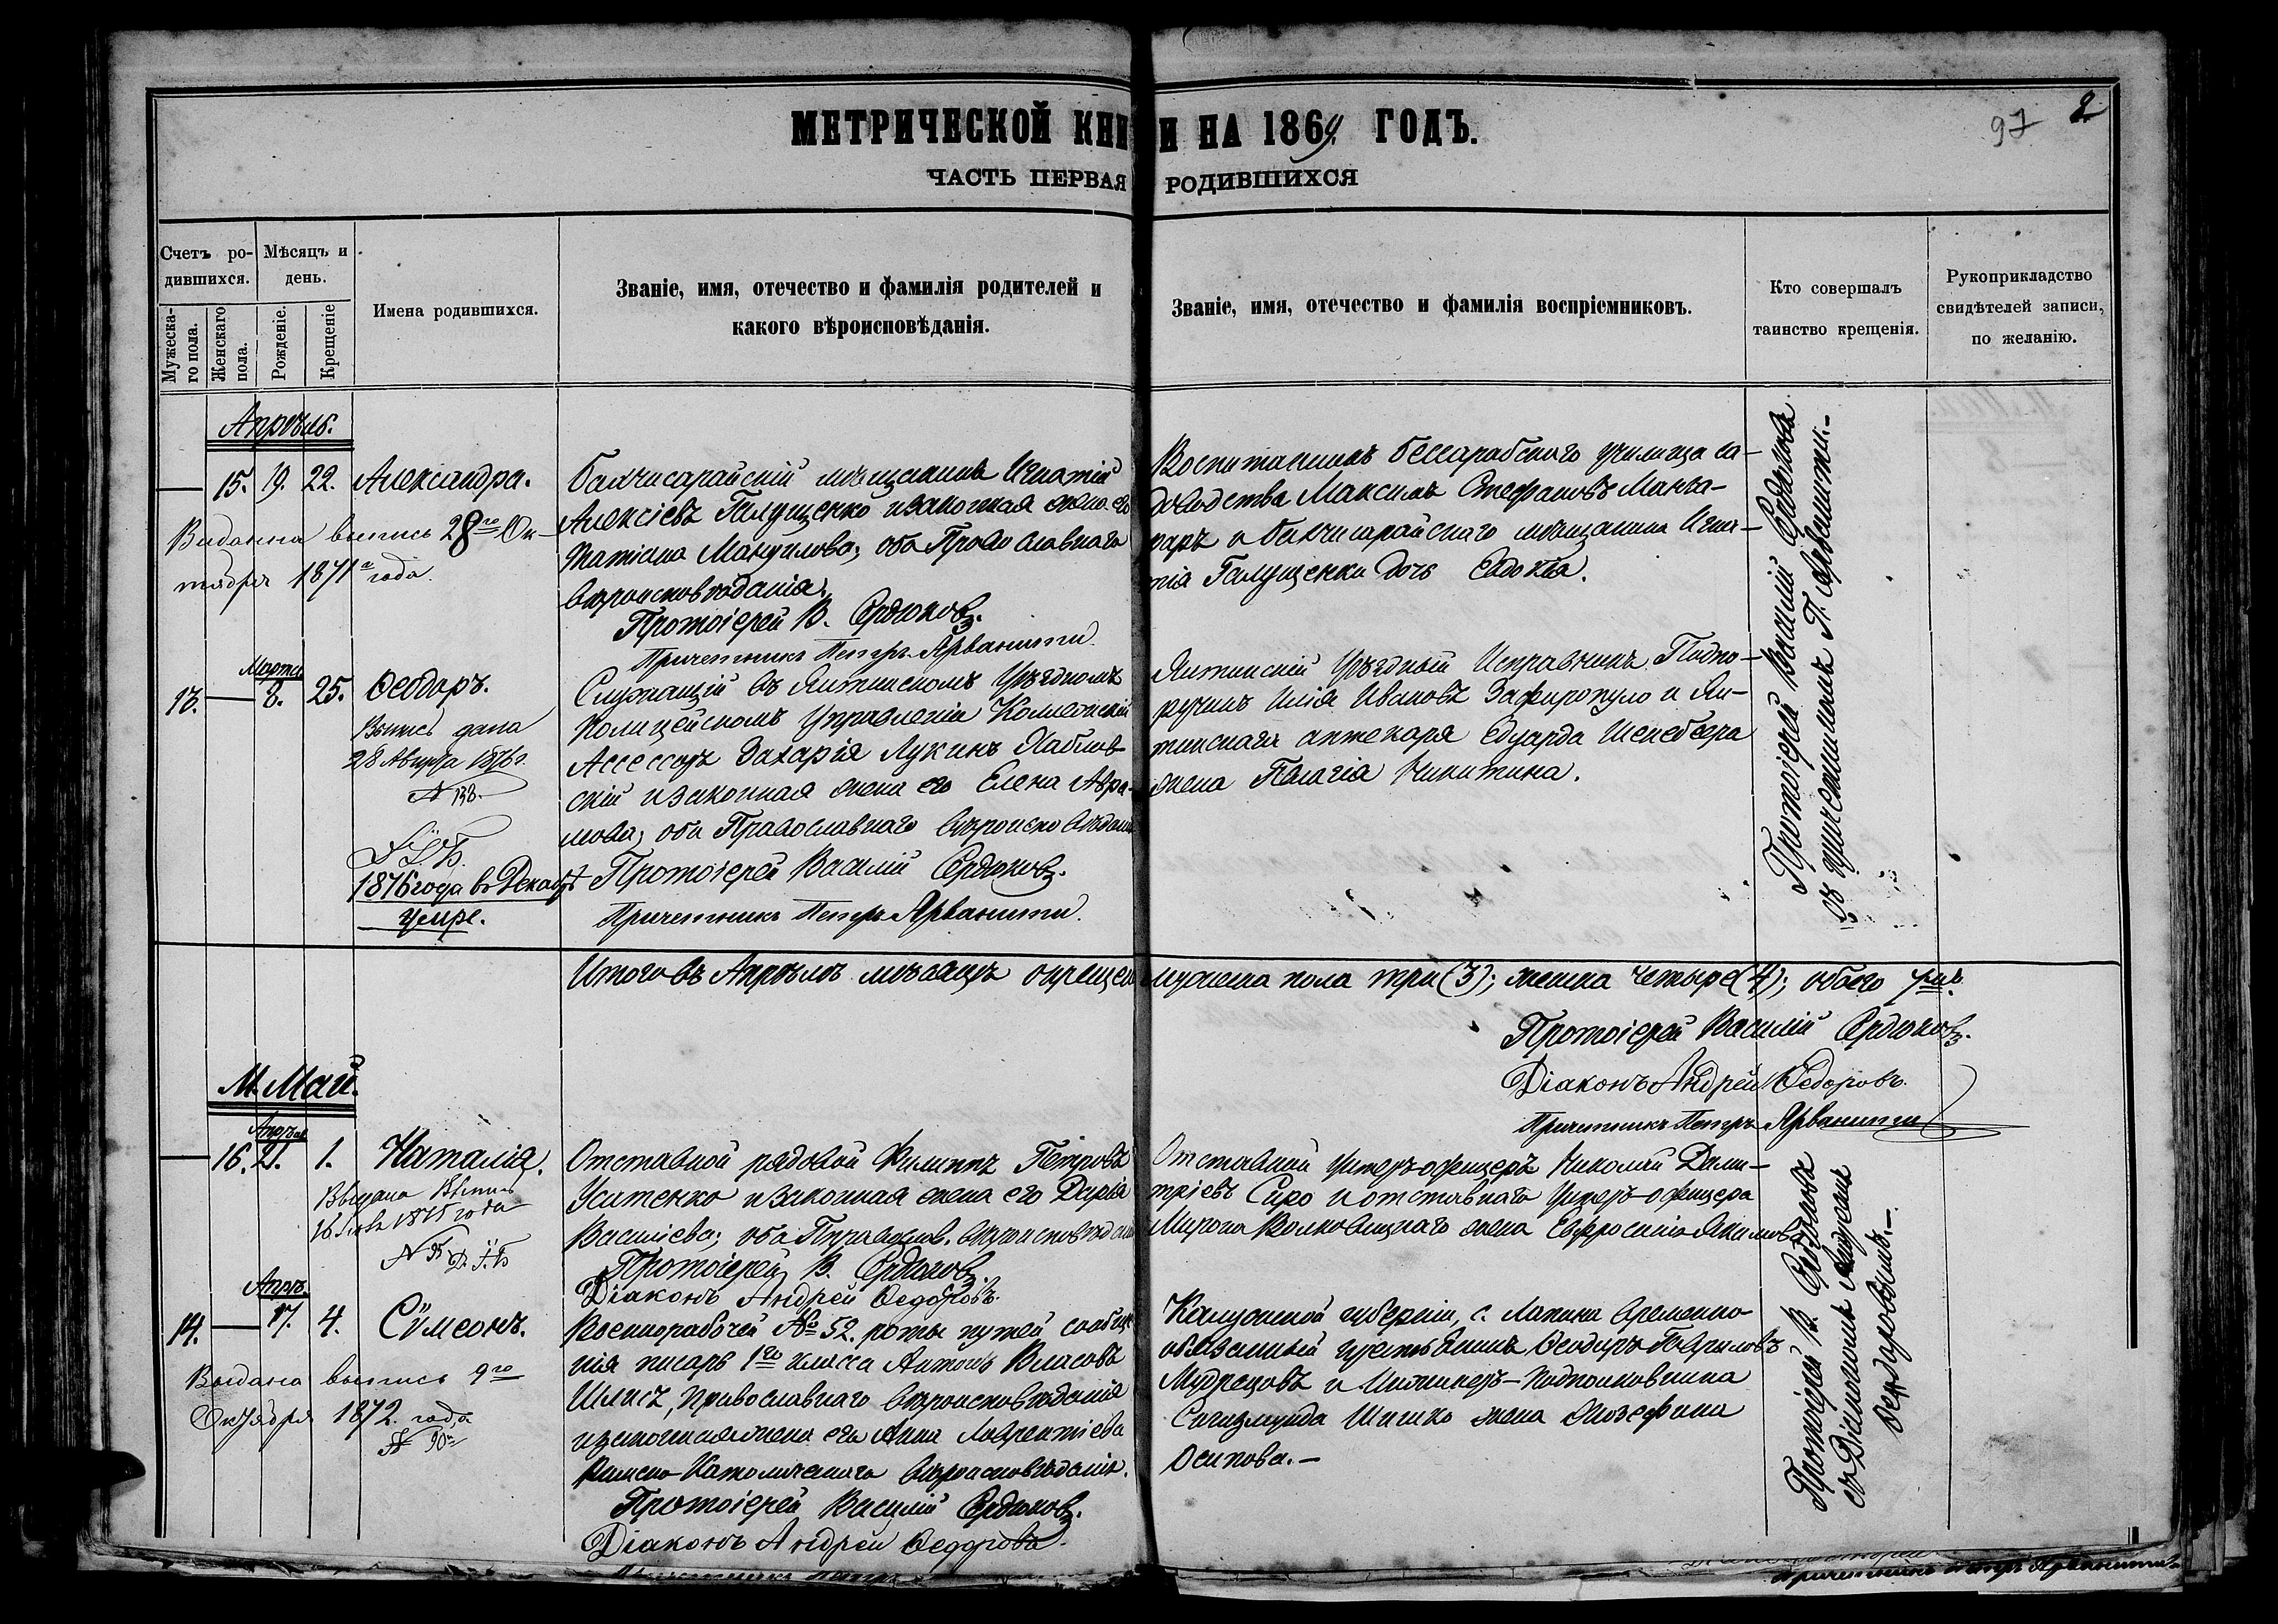 97 2
МЕТРИЧЕСКОЙ КНИ И НА 1869. ГОДЪ.
ЧАСТЬ ПЕРВАЯ РОДИВШИХСЯ
Счетъ ро-
дившихся.
Мужеска-
го пола.
Женскаго
пола.
Мѣсяцъ и
день.
Рожденіе.
Крещеніе
Имена родившихся.
Званіе, имя, отечество и фамилія родителей и
какого вѣроисповѣданія.
Званіе, имя, отечество и фамилія воспріемниковъ.
Кто совершалъ
таинство крещенія.
Рукоприкладство
свидѣтелей записи,
по желанію.
Апрѣль.
15. 19. 22. Александра.
Выдана выпись 28го Ок-
тября 1871 года.
Бахчисарайскій мѣщанинъ Игнатій
Алексіевъ Галущенко и законная жена его
Татіана Мануилова; оба Православнаго
вѣроисповѣданія.
Протоіерей В. Сердюковъ.
Причетникъ Петръ Арванити.
Воспитанникъ Бессарабскаго училища са-
доводства Максимъ Стефановъ
и бахчисарайскаго мѣщанина Игна-
тія Галущенки дочь Евдокія.
Марта
13. 8. 25. Ѳеодоръ.
Выпись дана
28 Августа 1876 г.
1876 года въ Декабрѣ
умре.
Служащій въ Ялтинскомъ Уѣздномъ
Полицейскомъ Управленіи Коллежскій
Ассессоръ Захарія Лукинъ Хаблов-
скій и законная жена его Елена Авра-
мова; оба Православнаго вѣроисповѣдані
Протоіерей Василій Сердюковъ.
Причетникъ Петръ Арванити.
Ялтинскій Уѣздный Исправникъ Подпо-
ручикъ Илія Ивановъ Зафиропуло и Ял-
тинскаго аптекаря Едуарда
жена Пелагія Никитина.
Протоіерей Василій Сердюковъ
съ причетникомъ П. Арванити.-
Итого въ Апрѣлѣ мѣсяцѣ окрещен мужеска пола три (3); женска четыре (4); обоего
Протоіерей Василій Сердюковъ.
Діаконъ Андрей Ѳедоровъ.
Причетникъ Петръ Арванити
М. Май.
Апрѣля
16. 21. 1. Наталія.
Выдана Выпись
1875 года
Отставной рядовой Филиппъ Петровъ
Уситенко и законная жена его Дарія
Василіева; оба Православ. вѣроисповѣдан
Протоіерей В. Сердюковъ.
Діаконъ Андрей Ѳедоровъ.
Отставной Унтеръ-офицеръ Николай Дими-
тріевъ Сиро и отставнаго Унтеръ-офицера
Мирона Волковицкаго жена Евфросинія Якимова
Апрѣ.
14. 17. 4. Сѵмеонъ.
Выдана выпись 9го
Октября 1872. года
№ 90
Военнорабочей № 52. роты путей сообще
нія писарь 1го класса Антонъ Власовъ
Шлисъ, православнаго вѣроисповѣданія
и законная жена его Анна Лаврентіева
Римско-Католическаго вѣроисповѣданія.
Протоіерей Василій Сердюковъ.
Діаконъ Андрей Ѳедоровъ.
Калужской губерніи, с. Лапина временно-
обязанный крестьянинъ Ѳеодоръ Гавриловъ
Мудрецовъ и Инженеръ-Подполковника
Сигизмунда Шишко жена Іозефина
Осипова.-
Протоіерей В. Сердюковъ
съ Діакономъ Андреемъ
Ѳеодоровымъ.-
Причетникъ Петръ Арванити